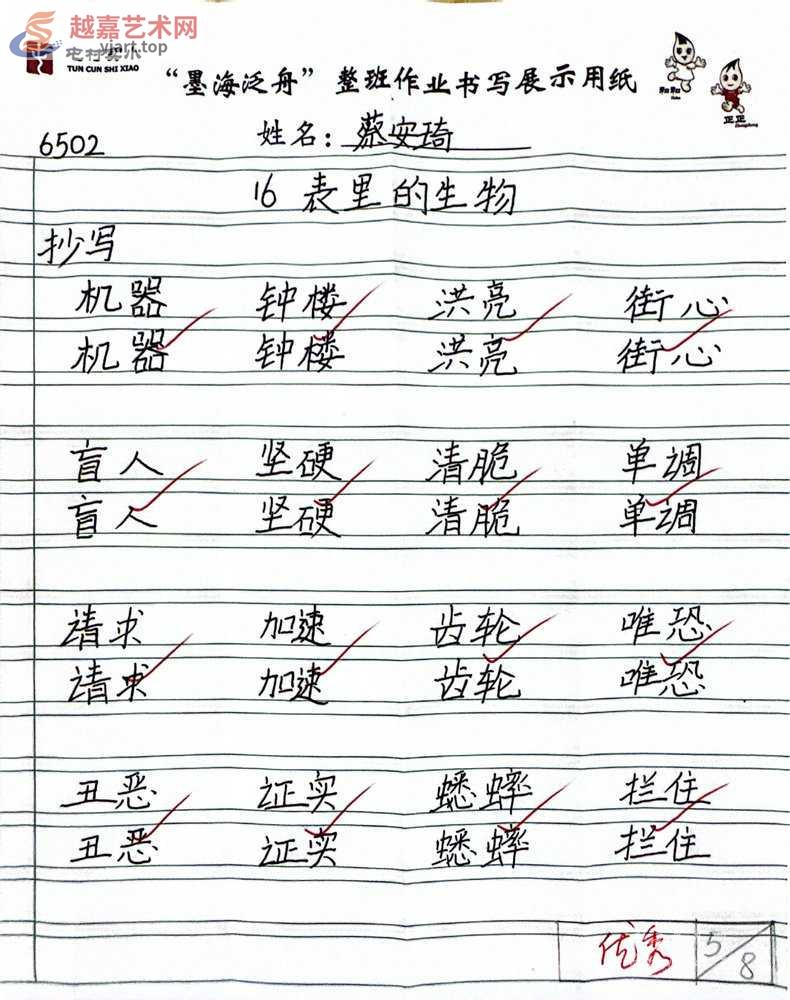 越嘉艺术网
yjart.top
屯村实小
TUN CUN SHI XIAO
“墨海泛舟”整班作业书写展示用纸
和和
正正
6502 姓名：蔡安琦
16 表里的生物
抄写
机器 钟楼 洪亮 街心
机器 钟楼 洪亮 街心
盲人 坚硬 清脆 单调
盲人 坚硬 清脆 单调
请求 加速 齿轮 唯恐
请求 加速 齿轮 唯恐
丑恶 证实 蟋蟀 拦住
丑恶 证实 蟋蟀 拦住
优秀 5/8